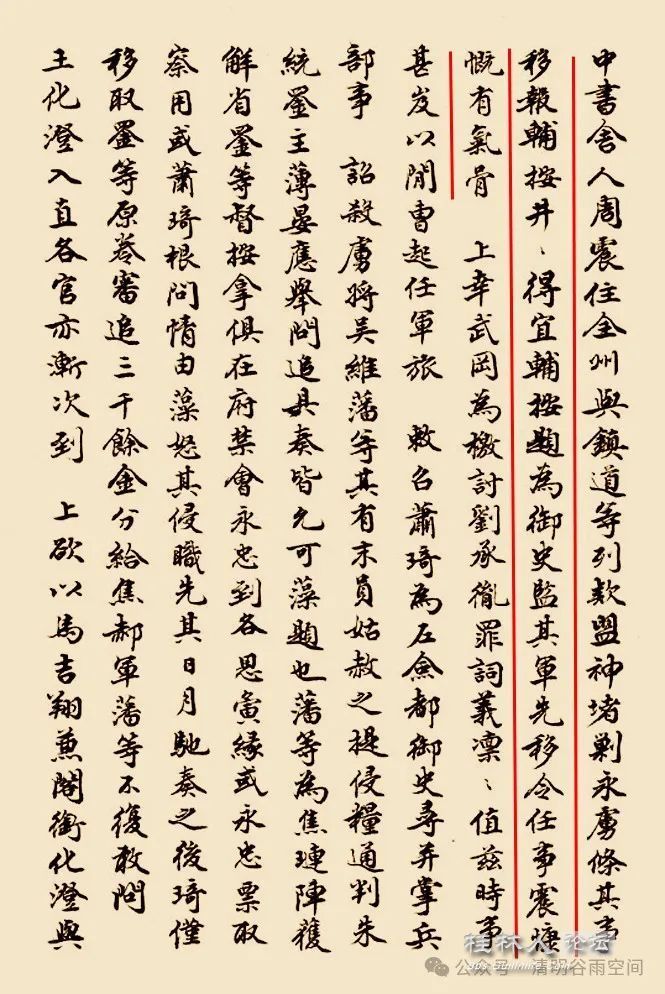 中書舍人周震住全州與鎮道等列款盟神堵剿永虜條其事
移報輔按井〻得宜輔按題為御史監其軍先移令任事震慷
慨有氣骨　上幸武岡為檄討劉承胤罪詞義凛〻值茲時事
甚岌以閒曹起任軍旅　敕召蕭琦為左僉都御史尋弃掌兵
部事　詔殺虜將吴維藩等其有末員姑赦之提侵糧通判朱
統鋆主薄晏應舉問追具奏皆允可藻題也藩等為焦璉陣獲
解省鋆等督按拿俱在府禁會永忠到各思夤緣或永忠票取
察用或蕭琦根問情由藻怒其侵職先其日月馳奏之後琦僅
移取鋆等原卷審追三千餘金分給焦郝軍藩等不復敢問
王化澄入直各官亦漸次到　上欲以馬吉翔兼閣銜化澄與
桂林人论坛
bbs.guilinlife.com
公众号·清明谷雨空间